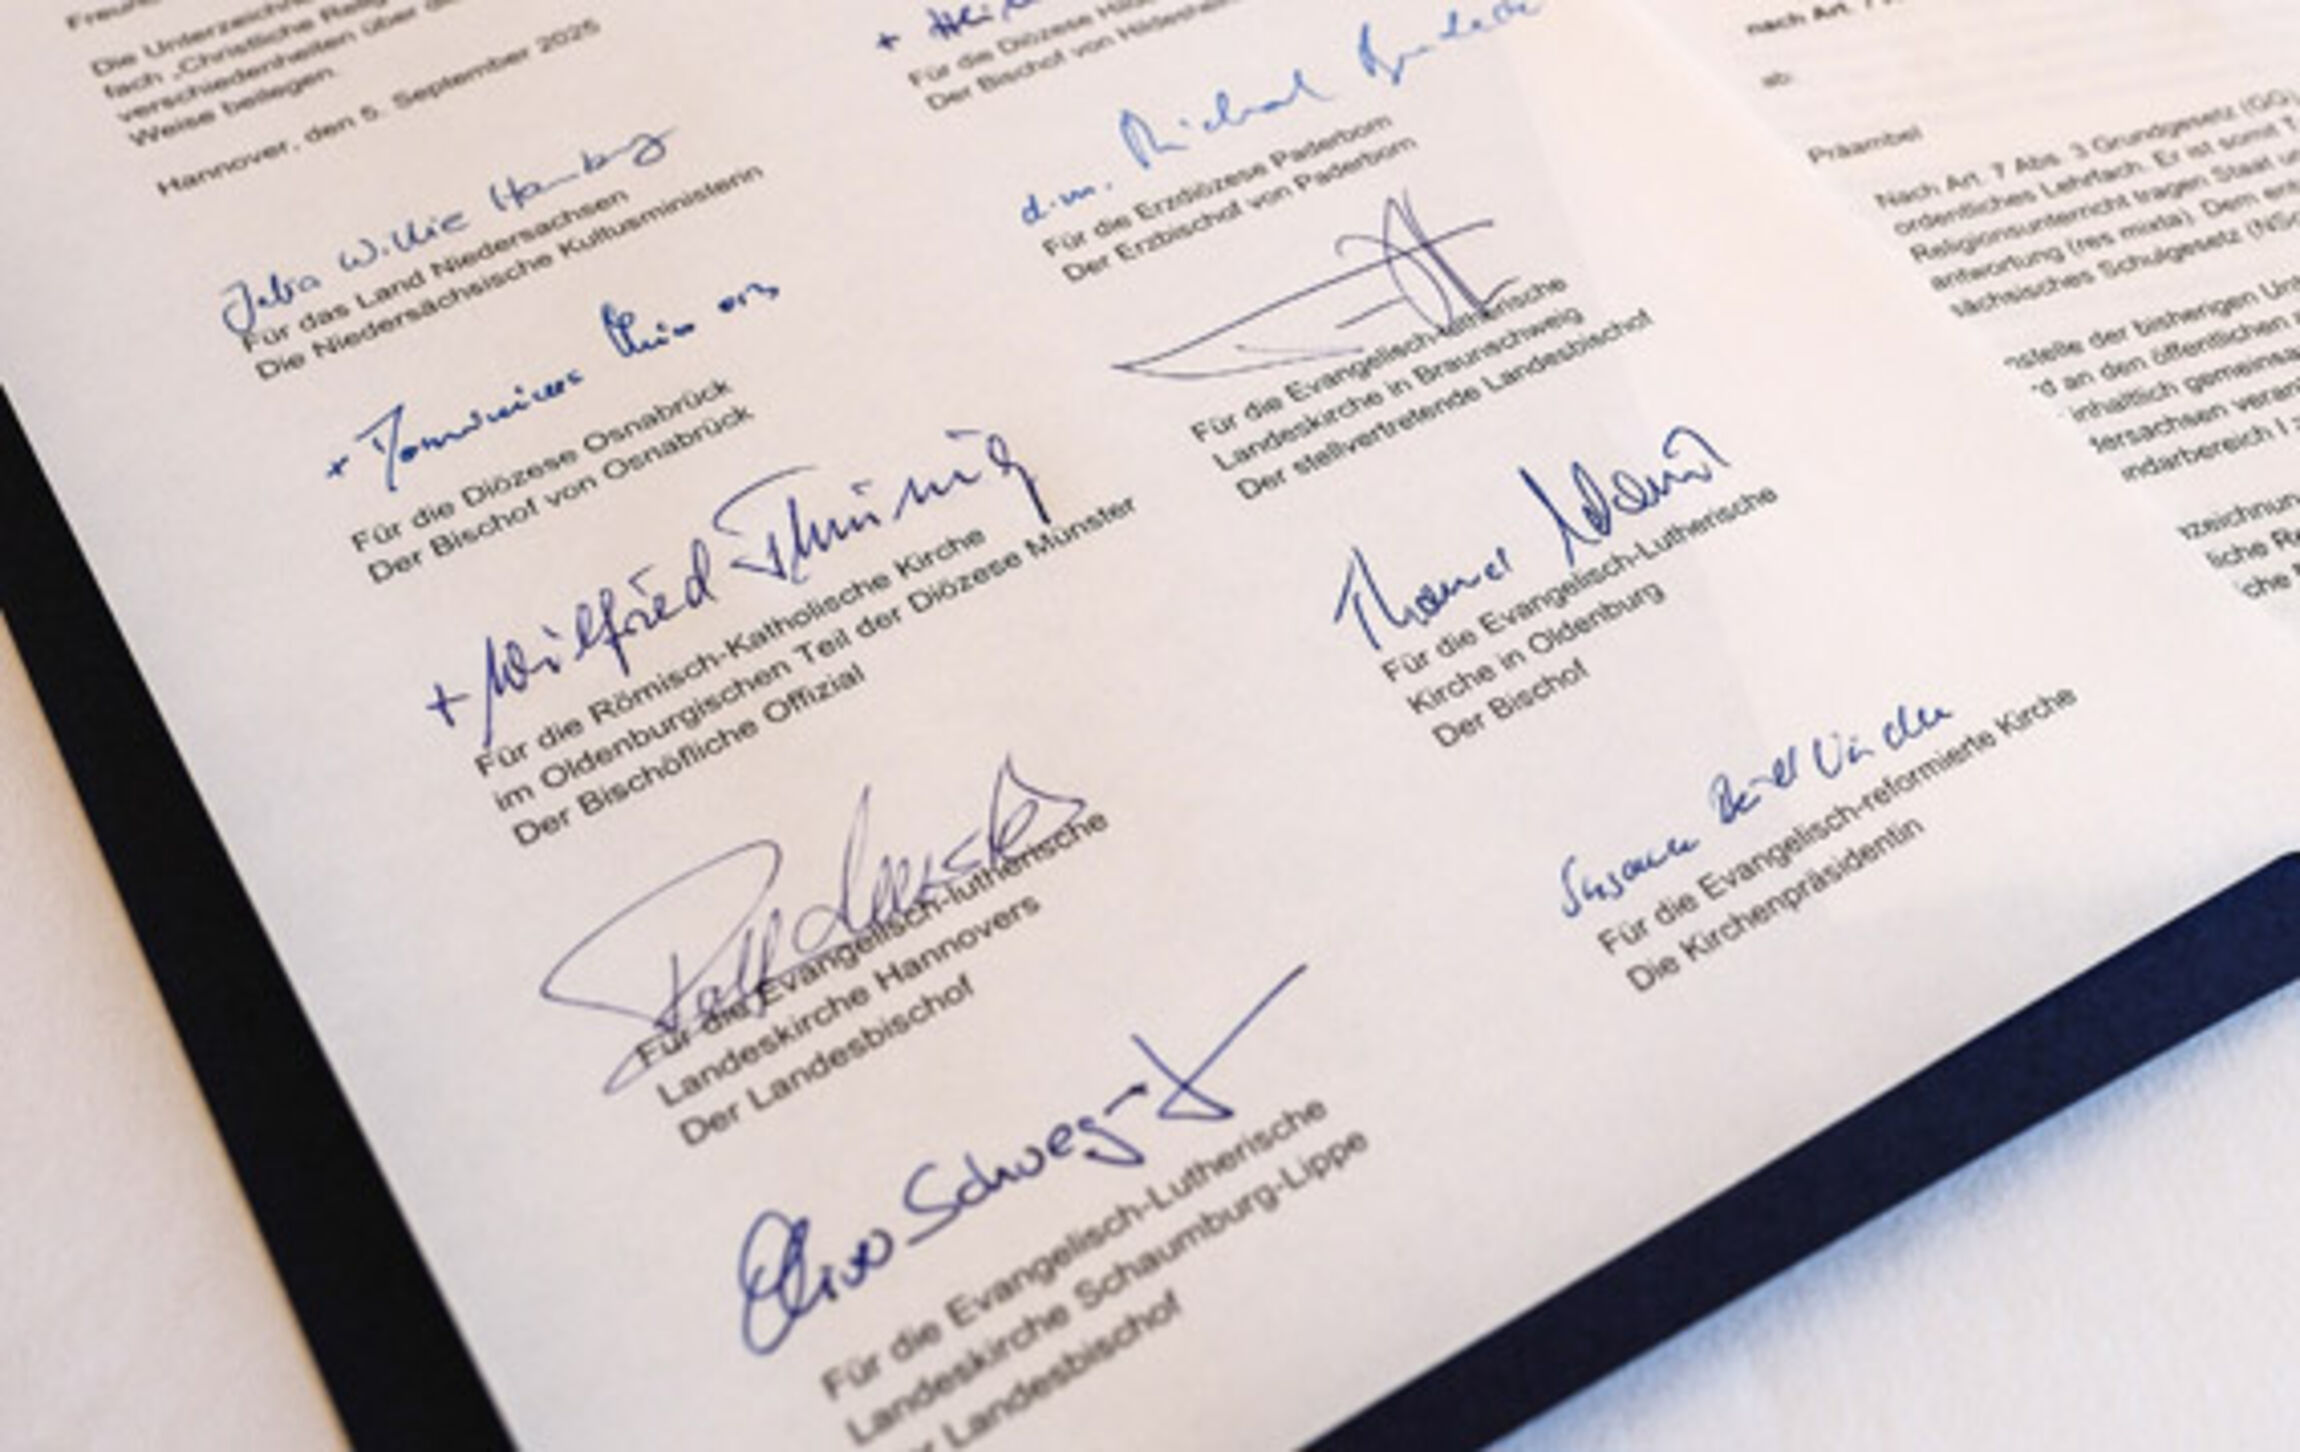 Freun
Die Unterzeichn
fach „Christliche Relig
verschiedenheiten über di
Weise beilegen.
Hannover, den 5. September 2025
Julia Willie Hamburg
Für das Land Niedersachsen
Die Niedersächsische Kultusministerin
+ Dominicus
Für die Diözese Osnabrück
Der Bischof von Osnabrück
+ Wilfried Theising
Für die Römisch-Katholische Kirche
im Oldenburgischen Teil der Diözese Münster
Der Bischöfliche Offizial
Für die Evangelisch-lutherische
Landeskirche Hannovers
Der Landesbischof
Oliver Schwegmann
Für die Evangelisch-Lutherische
Landeskirche Schaumburg-Lippe
Landesbischof
+ Hei
Für die Diözese Hildes
Der Bischof von Hildesheim
Michael
Für die Erzdiözese Paderborn
Der Erzbischof von Paderborn
Für die Evangelisch-lutherische
Landeskirche in Braunschweig
Der stellvertretende Landesbischof
Thomas Adomeit
Für die Evangelisch-Lutherische
Kirche in Oldenburg
Der Bischof
Susanne
Für die Evangelisch-reformierte Kirche
Die Kirchenpräsidentin
nach Art. 7
ab:
Präambel
Nach Art. 7 Abs. 3 Grundgesetz (GG)
ordentliches Lehrfach. Er ist somit T
Religionsunterricht tragen Staat un
antwortung (res mixta). Dem ent
sächsisches Schulgesetz (NSc
nstelle der bisherigen Unt
d an den öffentlichen
inhaltlich gemeinsa
dersachsen verant
ndarbereich I
zeichnun
liche Re
che